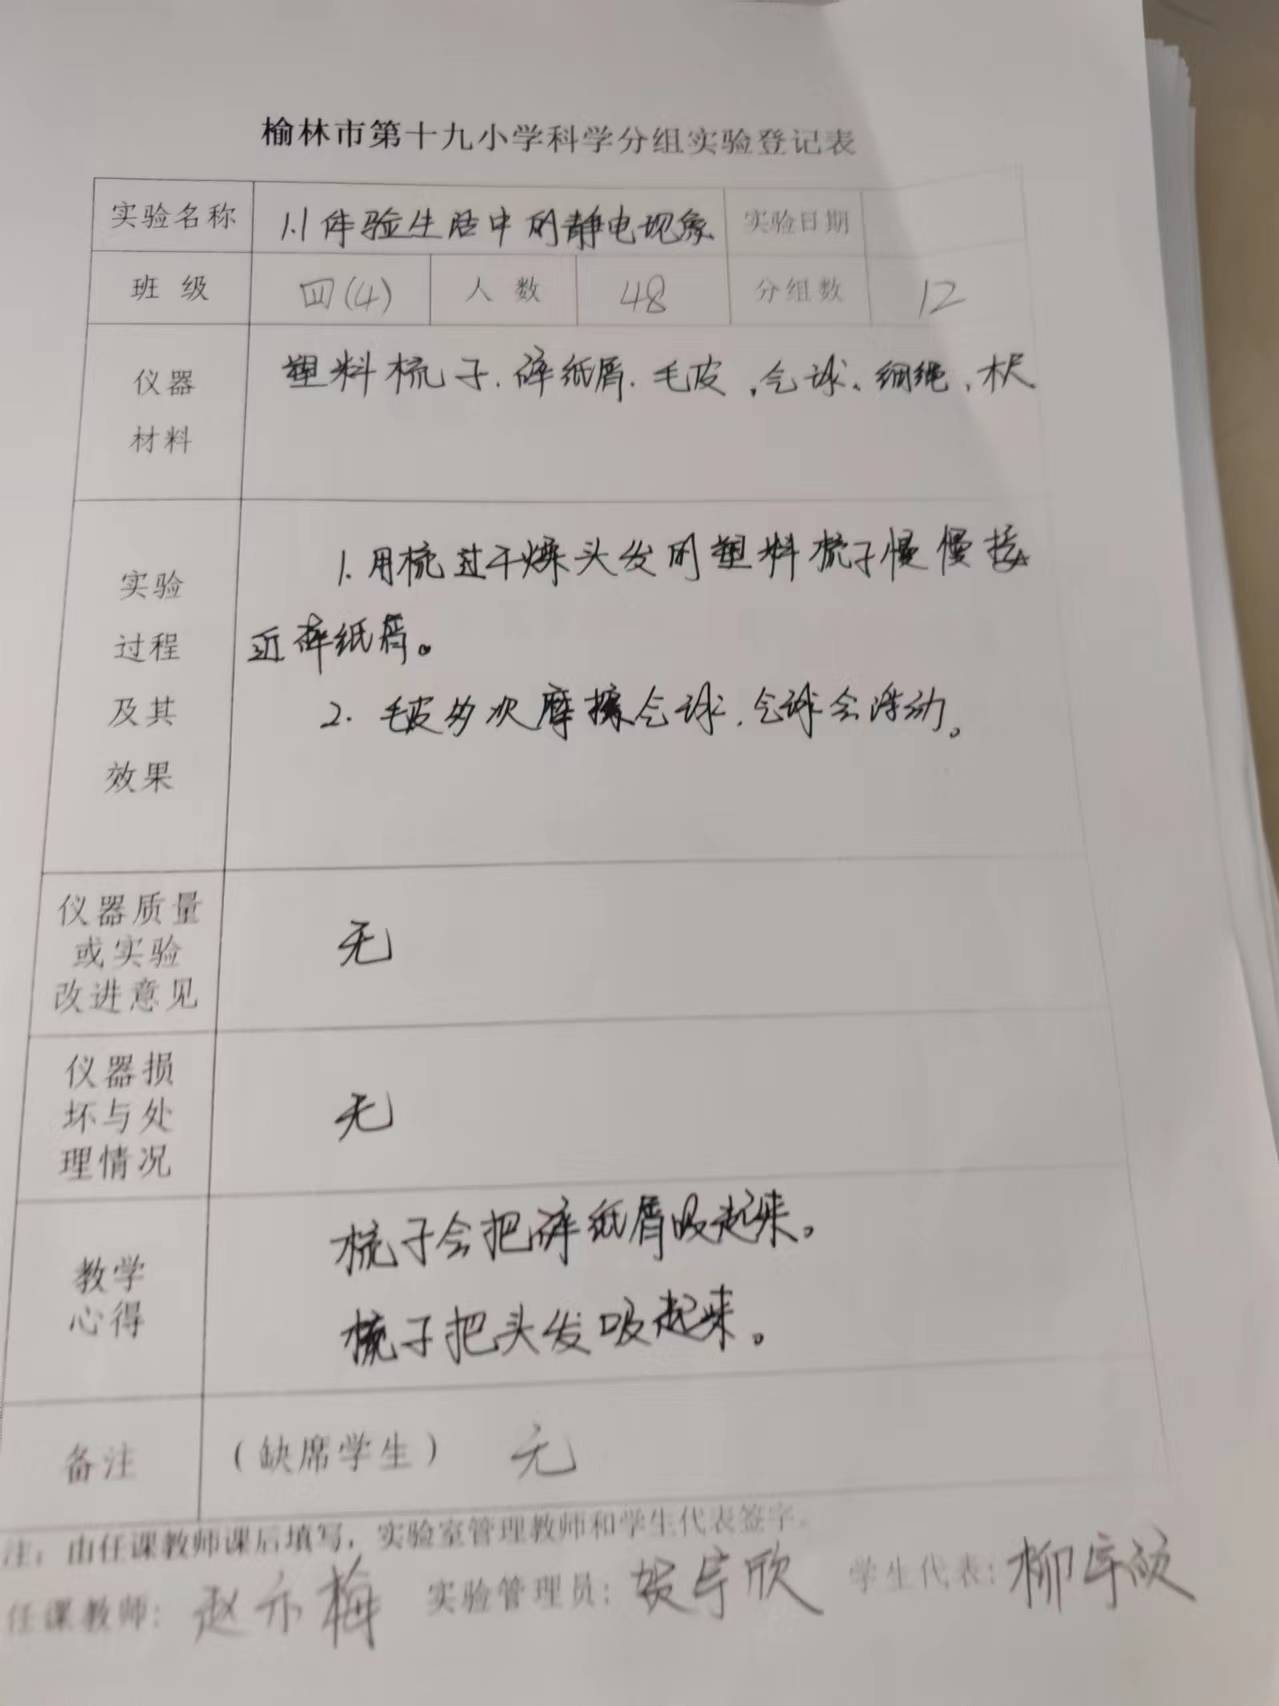 榆林市第十九小学科学分组实验登记表
实验名称 1.1 体验生活中的静电现象 实验日期
班 级 四(4) 人 数 48 分组数 12
仪器 塑料梳子、碎纸屑、毛皮、气球、细绳、木尺
材料
1. 用梳过干燥头发的塑料梳子慢慢接
实验
过程 近碎纸屑。
及其 2. 毛皮多次摩擦气球,气球会浮动。
效果
仪器质量
或实验 无
改进意见
仪器损
坏与处 无
理情况
梳子会把碎纸屑吸起来。
教学
心得 梳子把头发吸起来。
备注 (缺席学生) 无
注:由任课教师课后填写,实验室管理教师和学生代表签字。
任课教师: 赵 梅 实验管理员: 贺宇欣 学生代表: 柳宇